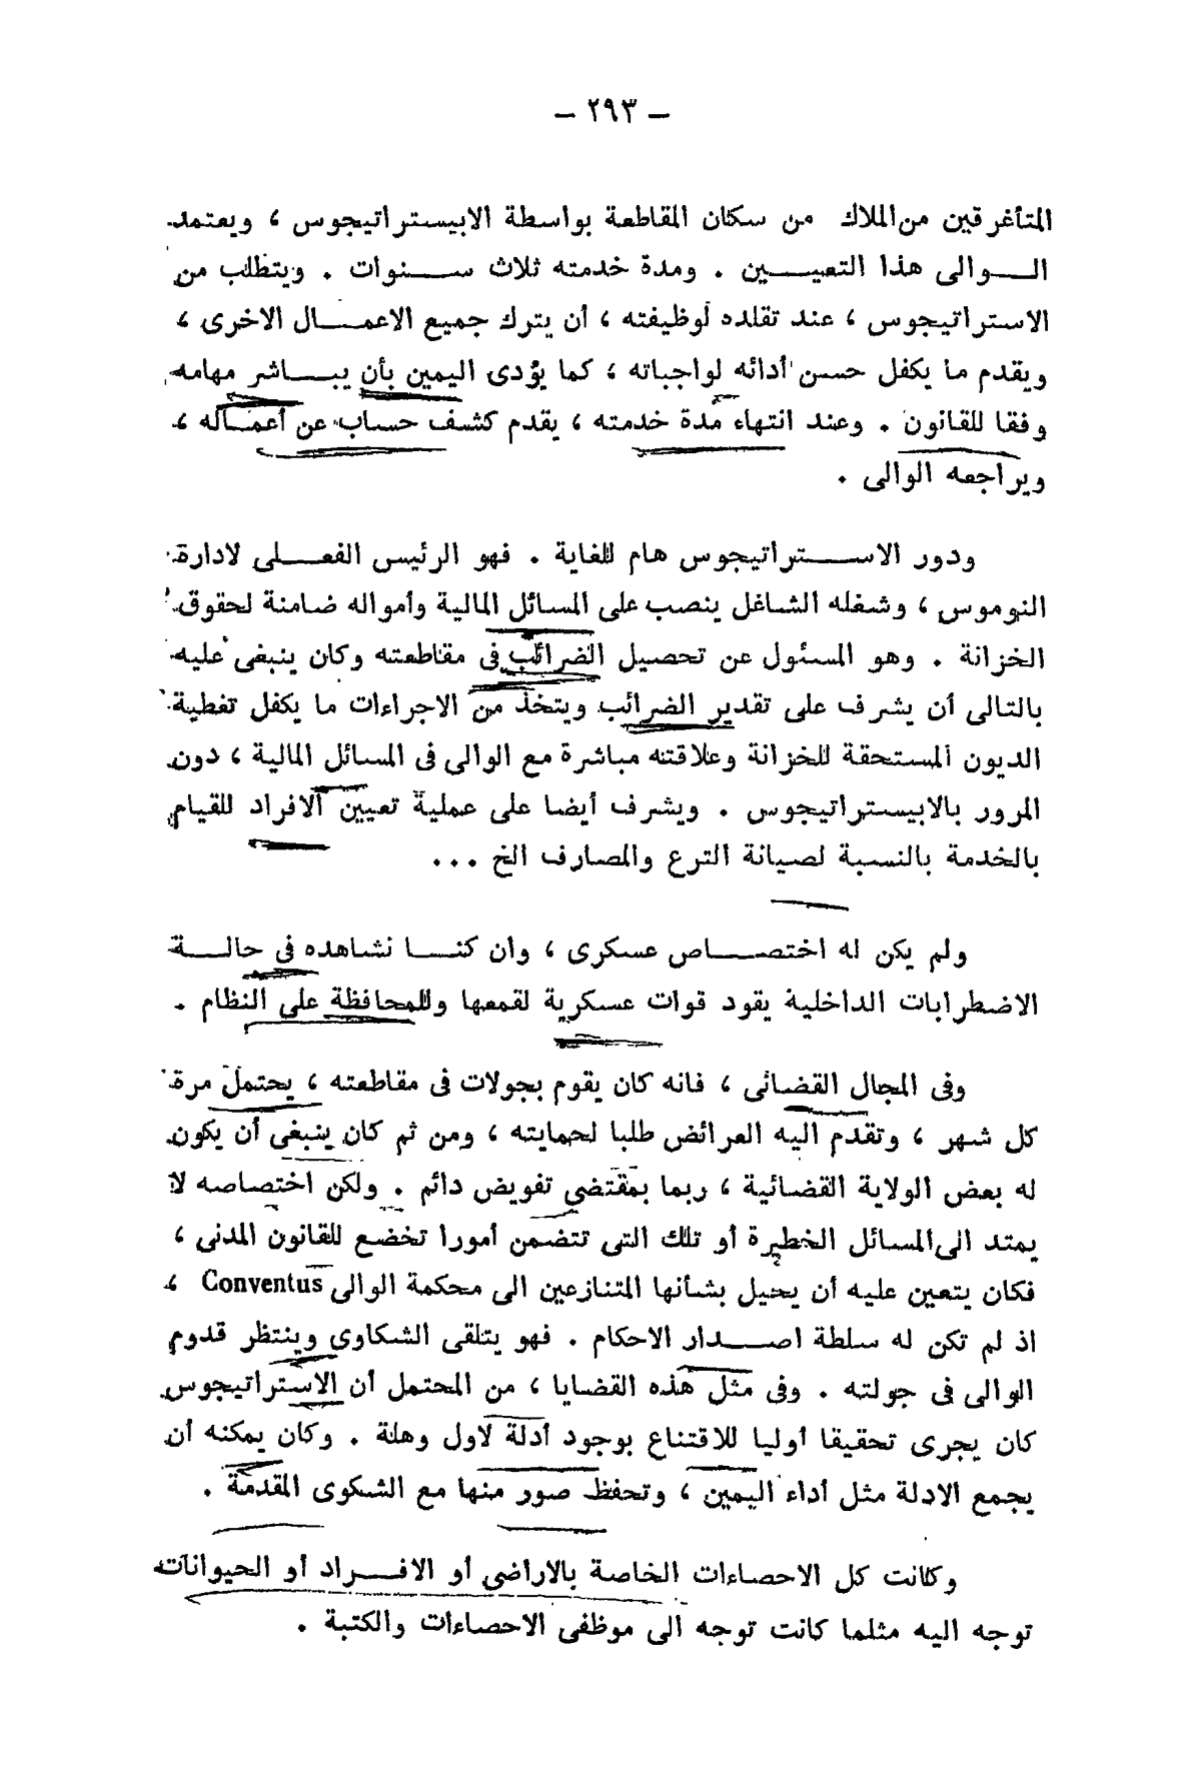 — ٢٩٣ —
المتأغرقين من الملاك من سكان المقاطعة بواسطة الابيستراتيجوس ، ويعتمد
الوالى هذا التعيين . ومدة خدمته ثلاث سنوات . ويتطلب من
الاستراتيجوس ، عند تقلده لوظيفته ، أن يترك جميع الاعمال الاخرى ،
ويقدم ما يكفل حسن أدائه لواجباته ، كما يؤدى اليمين بأن يباشر مهامه
وفقا للقانون . وعند انتهاء مدة خدمته ، يقدم كشف حساب عن أعماله ،
ويراجعه الوالى .
ودور الاستراتيجوس هام للغاية . فهو الرئيس الفعلى لادارة
النوموس ، وشغله الشاغل ينصب على المسائل المالية وأمواله ضامنة لحقوق
الخزانة . وهو المسئول عن تحصيل الضرائب فى مقاطعته وكان ينبغى عليه
بالتالى أن يشرف على تقدير الضرائب ويتخذ من الاجراءات ما يكفل تغطية
الديون المستحقة للخزانة وعلاقته مباشرة مع الوالى فى المسائل المالية ، دون
المرور بالابيستراتيجوس . ويشرف أيضا على عملية تعيين الافراد للقيام
بالخدمة بالنسبة لصيانة الترع والمصارف الخ ...
ولم يكن له اختصاص عسكرى ، وان كنا نشاهده فى حالة
الاضطرابات الداخلية يقود قوات عسكرية لقمعها وللمحافظة على النظام .
وفى المجال القضائى ، فانه كان يقوم بجولات فى مقاطعته ، يحتمل مرة
كل شهر ، وتقدم اليه العرائض طلبا لحمايته ، ومن ثم كان ينبغى أن يكون
له بعض الولاية القضائية ، ربما بمقتضى تفويض دائم . ولكن اختصاصه لا
يمتد الى المسائل الخطيرة أو تلك التى تتضمن أمورا تخضع للقانون المدنى ،
فكان يتعين عليه أن يحيل بشأنها المتنازعين الى محكمة الوالى Conventus ،
اذ لم تكن له سلطة اصدار الاحكام . فهو يتلقى الشكاوى وينتظر قدوم
الوالى فى جولته . وفى مثل هذه القضايا ، من المحتمل أن الاستراتيجوس
كان يجرى تحقيقا أوليا للاقتناع بوجود أدلة لاول وهلة . وكان يمكنه أن
يجمع الادلة مثل أداء اليمين ، وتحفظ صور منها مع الشكوى المقدمة .
وكانت كل الاحصاءات الخاصة بالاراضى أو الافراد أو الحيوانات
توجه اليه مثلما كانت توجه الى موظفى الاحصاءات والكتبة .